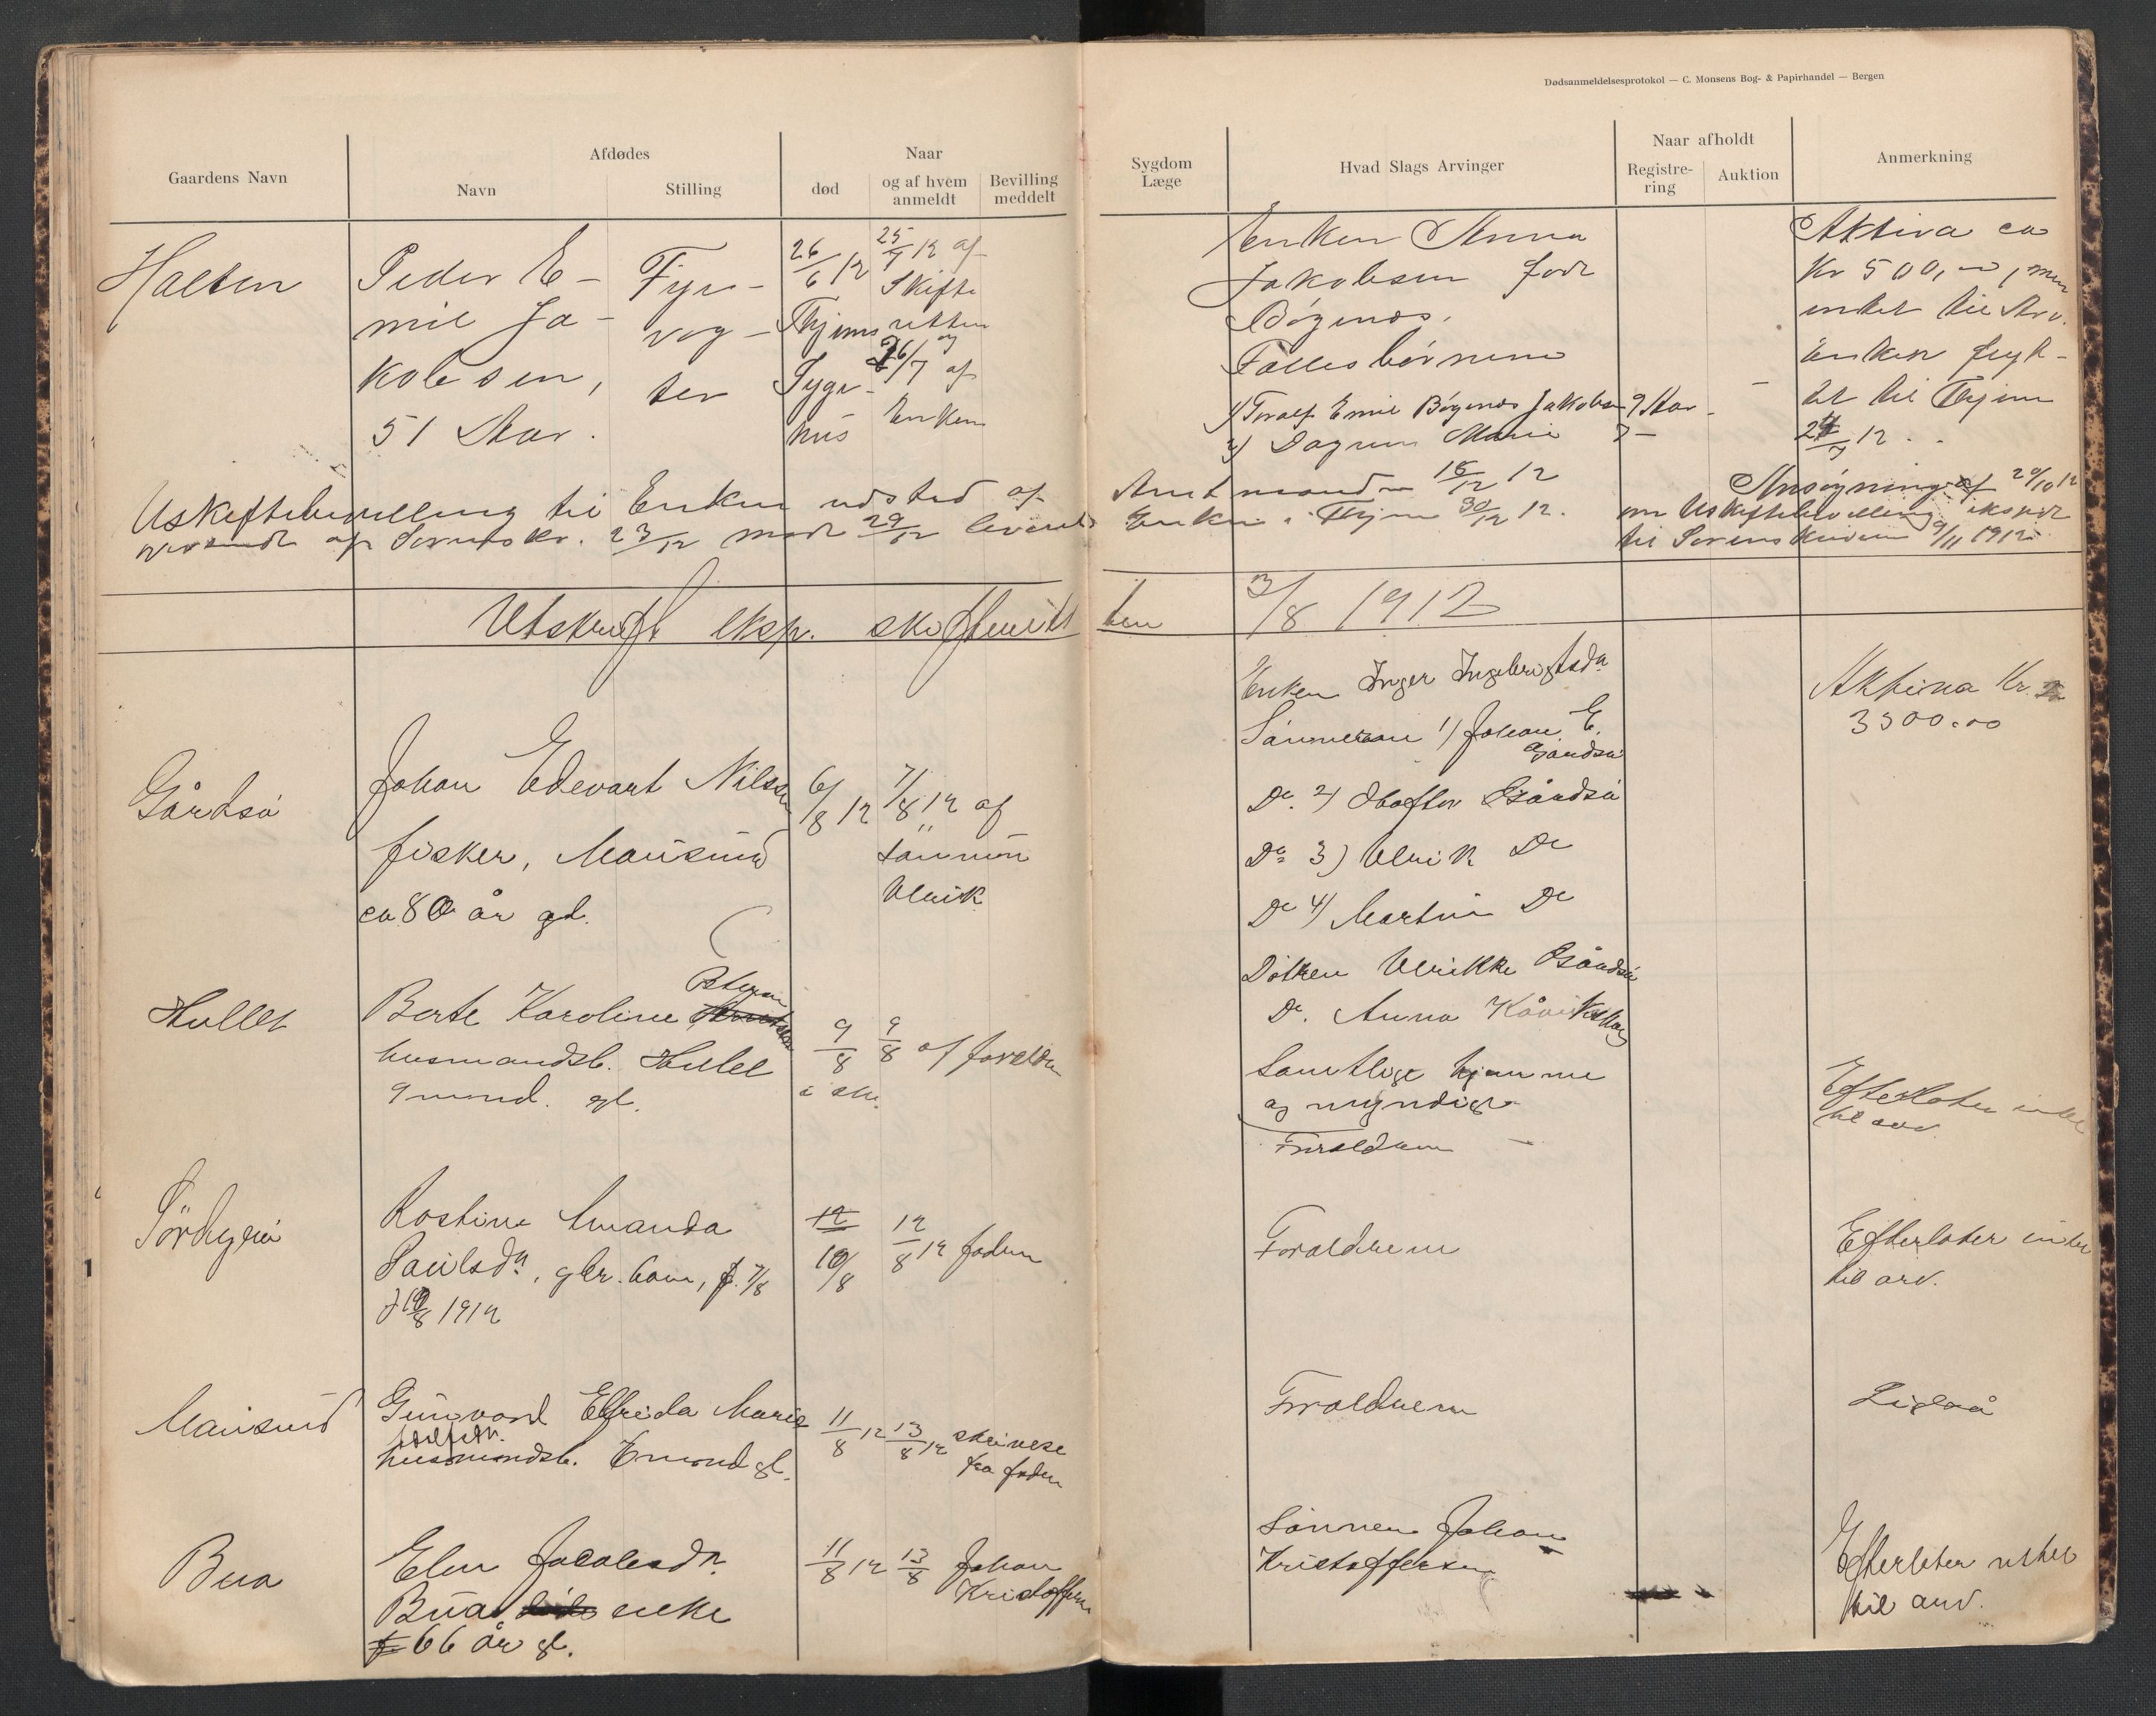 Dødsanmeldelsesprotokol — C. Monsens Bog- & Papirhandel — Bergen
Gaardens Navn
Afdødes
Navn
Stilling
Naar
død
og af hvem
anmeldt
Bevilling
meddelt
Sygdom
Læge
Hvad Slags Arvinger
Naar afholdt
Registre-
ring
Auktion
Anmerkning
Halten
Peder E-
mil Ja-
kobsen,
51 Aar.
Fyr-
vog-
ter
26/6 12
Thjems
Syge-
hus
25/7 12 af
Skifte
retten
og
26/7 af
Enken
Enken Anna
Jakobsen født
Bøgenæs.
Fællesbørnene
1) Toralf Emil Bøgenæs Jakobsen 9 Aar
2) Dagrun Marie 7 —
Aktiva ca
Kr 500,00, men
intet til Arv.
Enken flyt-
tet til Thjem
24/7 12.
Uskiftebevilling til Enken udsted af Amtmanden 18/12 12
af Sorenskr. 23/12 mod 29/12 leveret Enken i Thjem 30/12 12.
Ansøgning af 29/10 12
om Uskiftebevilling eksped
til Sorenskriveren 9/11 1912
Utskrift eksp. skifteretten 3/8 1912
Gårdsø
Johan Edevart Nilssen
fisker, Mausund
ca 80 år gl.
6/8 12
7/8 12 af
sønnen
Ulrik
Enken Inger Ingebrigtsdr
Sønnerne 1) Johan E.
Gaardsø
Do. 2) Haftor Gårdsø
Do 3) Ulrik Do
Do 4) Martin Do
Datter Ulrikke Gårdsø
Do. Anna
Samtlige hjemme
og myndige
Aktiva Kr.
3500.00
Hullet
Berte Karoline Petersen
husmandsb. Hullet
9 mnd. gl.
9/8
9/8 af forældre
Forældrene —
Efterlater intet
til arv.
Sørhyen
Kostine Amanda
Paulsdr, gbr. barn, f. 7/8
d 10/8 1912
12
10/8
12/8 12 faderen
Forældrene
Efterlater intet
til arv.
Mausund
Gunvard Elfrida Marie
husmandsb. mnd gl.
11/8 12
13/8 12 skrivelse
fra faderen
Forældrene
Ligeså
Bua
Elen Jacobsdr.
Bua enke
66 år gl.
11/8 12
13/8 Johan
Kristoffersen
Sønnen Johan
Kristoffersen
Efterlater intet
til arv.